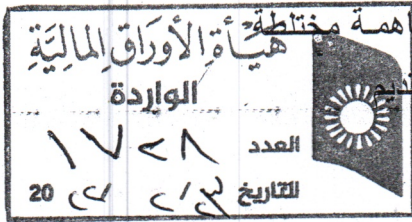 اهمة مختلطة
هيأة الأوراق المالية
الواردة
العدد ١٧٢٨
التاريخ ٢/٣ ٢٢ 20